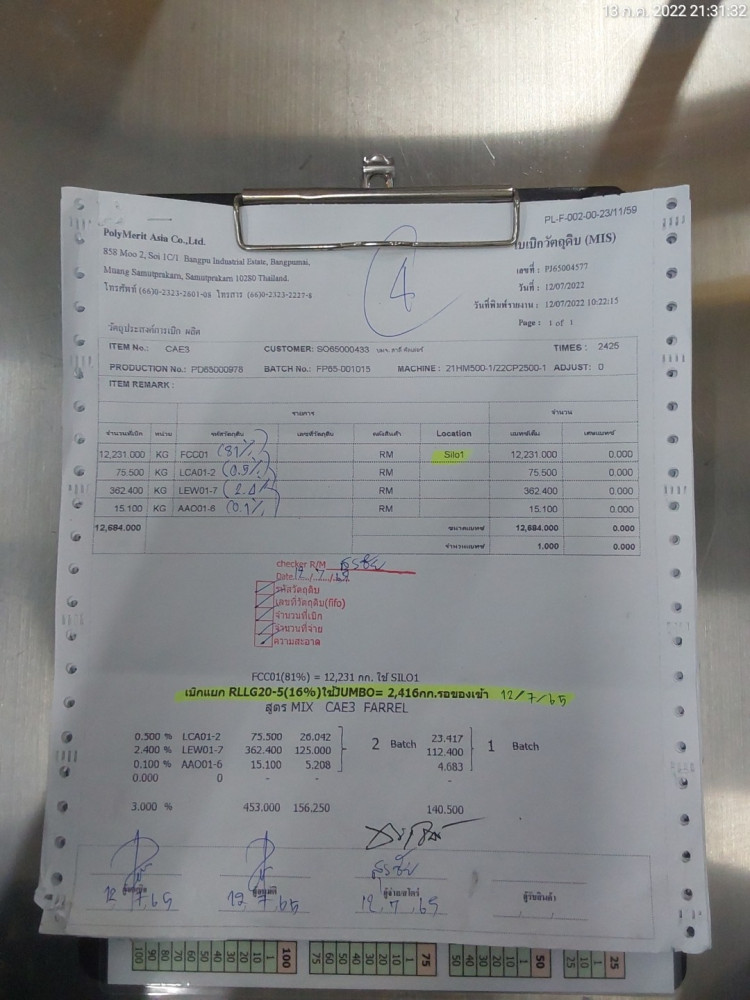 13 ก.ค. 2022 21:31:32
PL-F-002-00-23/11/59
PolyMerit Asia Co.,Ltd.
ใบเบิกวัตถุดิบ (MIS)
858 Moo 2, Soi 1C/1 Bangpu Industrial Estate, Bangpumai,
Muang Samutprakarn, Samutprakarn 10280 Thailand.
โทรศัพท์ (66)0-2323-2601-08 โทรสาร (66)0-2323-2227-8
4
เลขที่ : PJ65004577
วันที่ : 12/07/2022
วันที่พิมพ์รายงาน : 12/07/2022 10:22:15
Page : 1 of 1
วัตถุประสงค์การเบิก ผลิต
ITEM No.: CAE3 CUSTOMER: SO65000433 TIMES : 2425
PRODUCTION No.: PD65000978 BATCH No.: FP65-001015 MACHINE : 21HM500-1/22CP2500-1 ADJUST: 0
ITEM REMARK :
รายการ จำนวน
จำนวนที่เบิก หน่วย รหัสวัตถุดิบ เลขที่วัตถุดิบ คลังสินค้า Location แบทช์เต็ม เศษแบทช์
12,231.000 KG FCC01 (81%) RM Silo1 12,231.000 0.000
75.500 KG LCA01-2 (0.5%) RM 75.500 0.000
362.400 KG LEW01-7 (2.4%) RM 362.400 0.000
15.100 KG AAO01-6 (0.1%) RM 15.100 0.000
12,684.000 ขนาดแบทช์ 12,684.000 0.000
จำนวนแบทช์ 1.000 0.000
checker R/M สุรชัย
Date 12/7/65
รหัสวัตถุดิบ
เลขที่วัตถุดิบ(fifo)
จำนวนที่เบิก
จำนวนที่จ่าย
ความสะอาด
FCC01(81%) = 12,231 กก. ใช้ SILO1
เบิกแยก RLLG20-5(16%)ใช้JUMBO= 2,416กก.รอของเข้า 12/7/65
สูตร MIX CAE3 FARREL
0.500 % LCA01-2 75.500 26.042 23.417
2.400 % LEW01-7 362.400 125.000 2 Batch 112.400 1 Batch
0.100 % AAO01-6 15.100 5.208 4.683
0.000 0 - - -
3.000 % 453.000 156.250 140.500
สุรชัย
12 7 65 12 7 65 12 7 65
ผู้อนุมัติ ผู้จ่าย/สโตร์ ผู้รับสินค้า
100 90 80 70 60 50 40 30 20 10 1 100
75 60 50 40 30 20 10 1 75
50 40 30 20 10 1 50
25 10 1 25